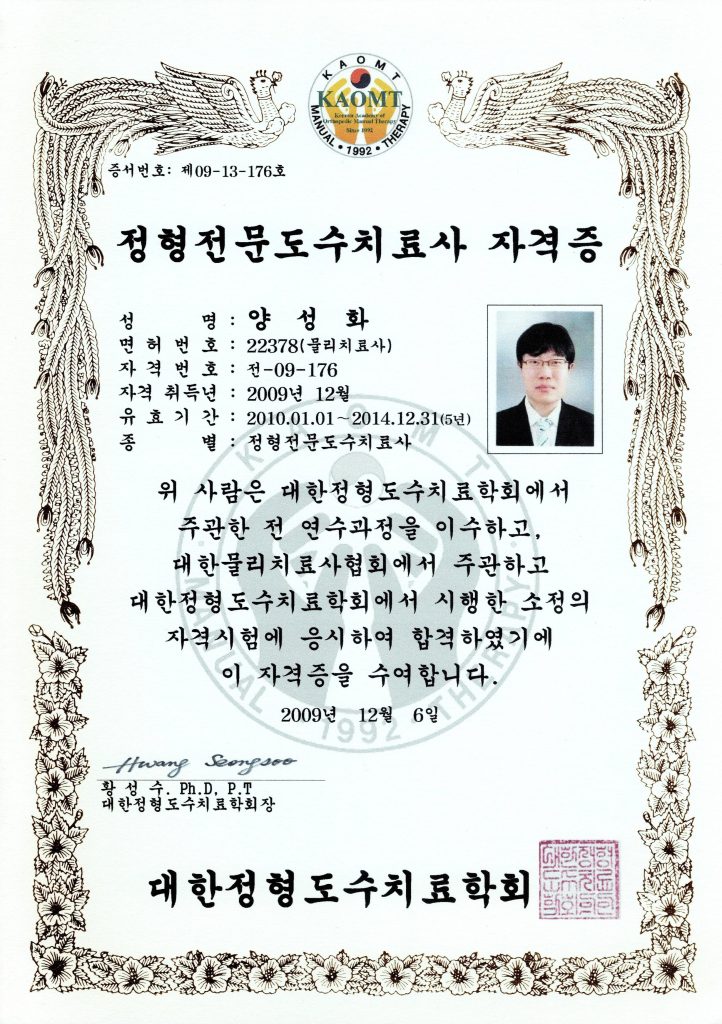 KAOMT
KAOMT
Korean Academy of
Orthopedic Manual Therapy
Since 1992
MANUAL • 1992 • THERAPY
증서번호: 제09-13-176호
정형전문도수치료사 자격증
성 명 : 양 성 화
면 허 번 호 : 22378(물리치료사)
자 격 번 호 : 전-09-176
자격 취득년 : 2009년 12월
유 효 기 간 : 2010.01.01~2014.12.31(5년)
종 별 : 정형전문도수치료사
위 사람은 대한정형도수치료학회에서
주관한 전 연수과정을 이수하고,
대한물리치료사협회에서 주관하고
대한정형도수치료학회에서 시행한 소정의
자격시험에 응시하여 합격하였기에
이 자격증을 수여합니다.
KAOMT
MANUAL • 1992 • THERAPY
2009년 12월 6일
Hwang Seongsoo
황 성 수. Ph.D, P.T
대한정형도수치료학회장
대한정형도수치료학회